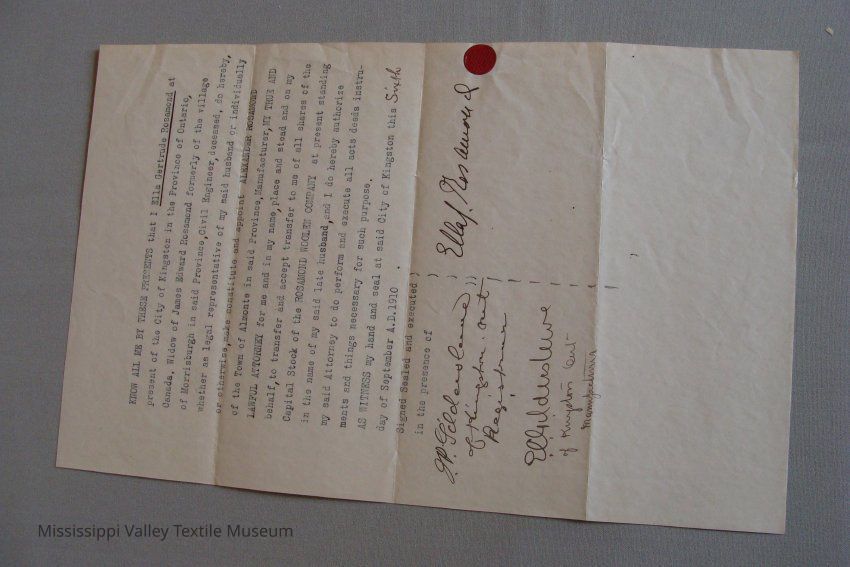 KNOW ALL ME BY THESE PRESENTS that I Ella Gertrude Rosamond at
present of the City of Kingston in the Province of Ontario,
Canada. Widow of James Edward Rosamond formerly of the village
of Morrisburgh in said Province,Civil Engineer,deceased, do hereby,
whether as legal representative of my said husband or individually
or otherwise,make constitute and appoint ALEXANDER ROSAMOND
of the Town of Almonte in said Province,Manufacturer,MY TRUE AND
LAWFUL ATTORNEY for me and in my name,place and stead and on my
behalf,to transfer and accept transfer to me of all shares of the
Capital Stock of the ROSAMOND WOOLEN COMPANY at present standing
in the name of my said late husband,and I do hereby authorize
my said Attorney to do perform and execute all acts deeds instru-
ments and things necessary for such purpose.
AS WITNESS my hand and seal at said City of Kingston this Sixth
day of September A.D.1910 .
Signed Sealed and executed )
in the presence of
J.P. Gildersleeve
of Kingston Ont
Registrar
Ella G Rosamond
Gildersleeve
of Kingston Ont
Mississippi Valley Textile Museum